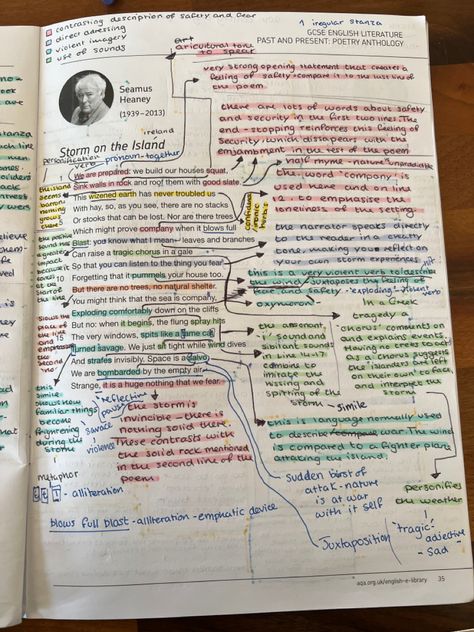 contrasting description of safety and fear
direct adressing
violent imagery
use of sounds
1 iregular stanza
GCSE ENGLISH LITERATURE
PAST AND PRESENT: POETRY ANTHOLOGY
Seamus
Heaney
(1939–2013)
ireland
Storm on the Island
personification
verb
pronoun-together
We are prepared: we build our houses squat,
Sink walls in rock and roof them with good slate.
This wizened earth has never troubled us
With hay, so, as you see, there are no stacks
Or stooks that can be lost. Nor are there trees
Which might prove company when it blows full
Blast: you know what I mean - leaves and branches
Can raise a tragic chorus in a gale
So that you can listen to the thing you fear
Forgetting that it pummels your house too.
But there are no trees, no natural shelter.
You might think that the sea is company,
Exploding comfortably down on the cliffs
But no: when it begins, the flung spray hits
The very windows, spits like a tame cat
Turned savage. We just sit tight while wind dives
And strafes invisibly. Space is a salvo,
We are bombarded by the empty air.
Strange, it is a huge nothing that we fear.
to spear
very strong opening statement that creates a
feeling of safety-compare it to the last line of
the poem
there are lots of words about safety
and security in the first two lines. The
end-stopping reinforces this feeling of
security which dissapears with the
enjambment in the rest of the poem
the word "company" is
used here and on line
12 to emphasise the
loneliness of the setting.
the narrator speaks directly
to the reader in a chatty
tone making you reflect on
your own storm experiences
this is a very violent verb to describe
the wind
juxtaposes the feeling of
fear and safety - "exploding" - violent
verb
oxymoron
In a Greek
tragedy a
'chorus' comments on
and explains events.
Having no trees to act
as a chorus suggests
the islanders are left
on their own to face
and interpret the
storm
the assonant
'i' sound and
sibilant sounds
in line 14-17
combine to
imitate the
hissing and
spitting of the
storm
simile
this is language normally used
to describe war. The wind
is compared to a fighter plane
attaking the island.
personifies
the weather
"tragic"
- adjective
- sad
Sudden burst of
attak - nature
is at war
with it self
Juxtaposition
reflective
pause
savage
violence
the storm is
invincible - there is
nothing solid there
These contrasts with
the solid rock mentioned
in the second line of the
poem
this
simile
shows how
familiar things
become
frightening
during the
storm
metaphor
- alliteration
blows full blast - alliteration - emphatic device
aqa.org.uk/english-e-library
35